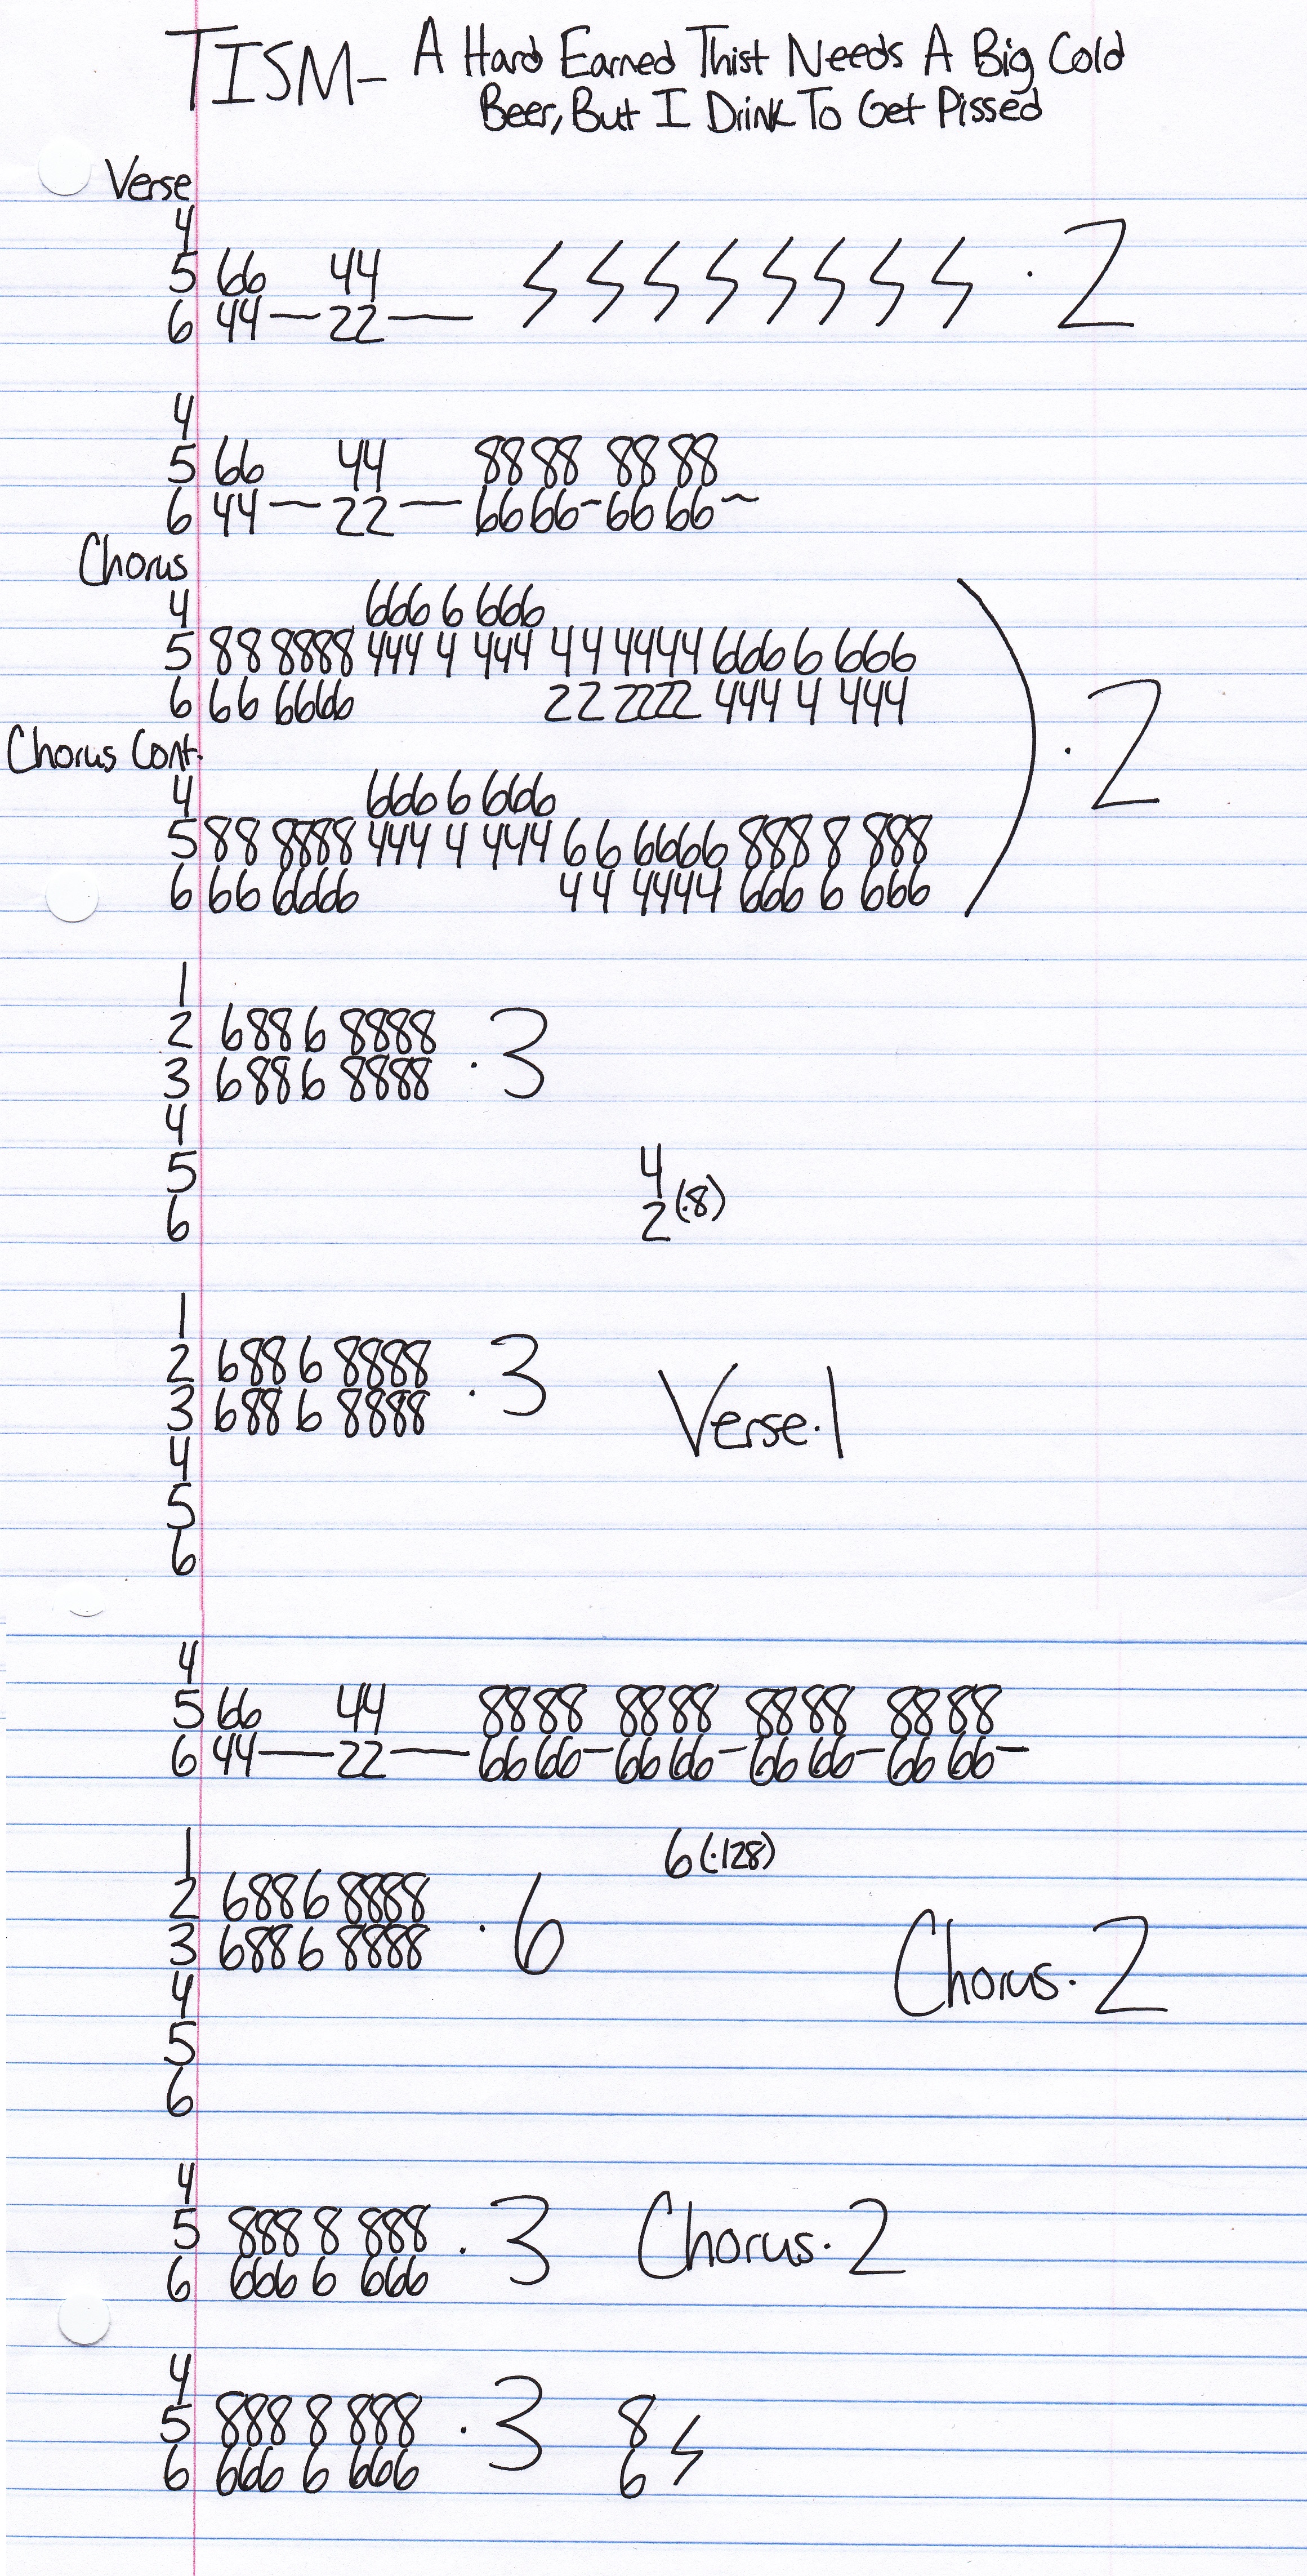 TISM- A Hard Earned Thist Needs A Big Cold
Beer, But I Drink To Get Pissed
Verse
4
5 66 44
6 44—22— · 2
4
5 66 44 88 88 88 88
6 44—22—66 66-66 66~
Chorus
4 666 6 666
5 88 8888 444 4 444 44 4444 666 6 666
6 66 6666 22 2222 444 4 444
· 2
Chorus Cont.
4 666 6 666
5 88 8888 444 4 444 66 6666 888 8 888
6 66 6666 44 4444 666 6 666
1
2 688 6 8888
3 688 6 8888 · 3
4
5 4
6 2 (·8)
1
2 688 6 8888
3 688 6 8888 · 3 Verse·1
4
5
6
4
5 66 44 88 88 88 88 88 88 88 88
6 44—22—66 66-66 66-66 66-66 66-
1 6(·128)
2 688 6 8888
3 688 6 8888 · 6 Chorus·2
4
5
6
4
5 888 8 888 · 3 Chorus·2
6 666 6 666
4
5 888 8 888 · 3 8
6 666 6 666 6